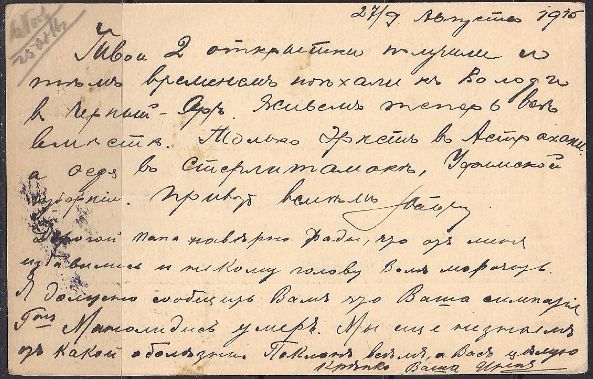 27/9 Августа 1915
Твои 2 открытки получили и
тѣмъ временемъ поѣхали къ Володѣ
въ Черный-Яръ. Живемъ теперь всѣ
вмѣстѣ. Только Эрнстъ въ Астрахани
а Федя въ Стерлитамакѣ, Уфимской
губерніи. Привѣтъ всѣмъ
Дорогой папа навѣрно рады, что отъ меня
избавились и некому голову Вамъ морочить.
Я должна сообщить Вамъ что Ваша симпатія
Манолидисъ умеръ. Мы еще не знаемъ
отъ какой болѣзни. Поклонъ всѣмъ, а Васъ цѣлую
крѣпко Ваша